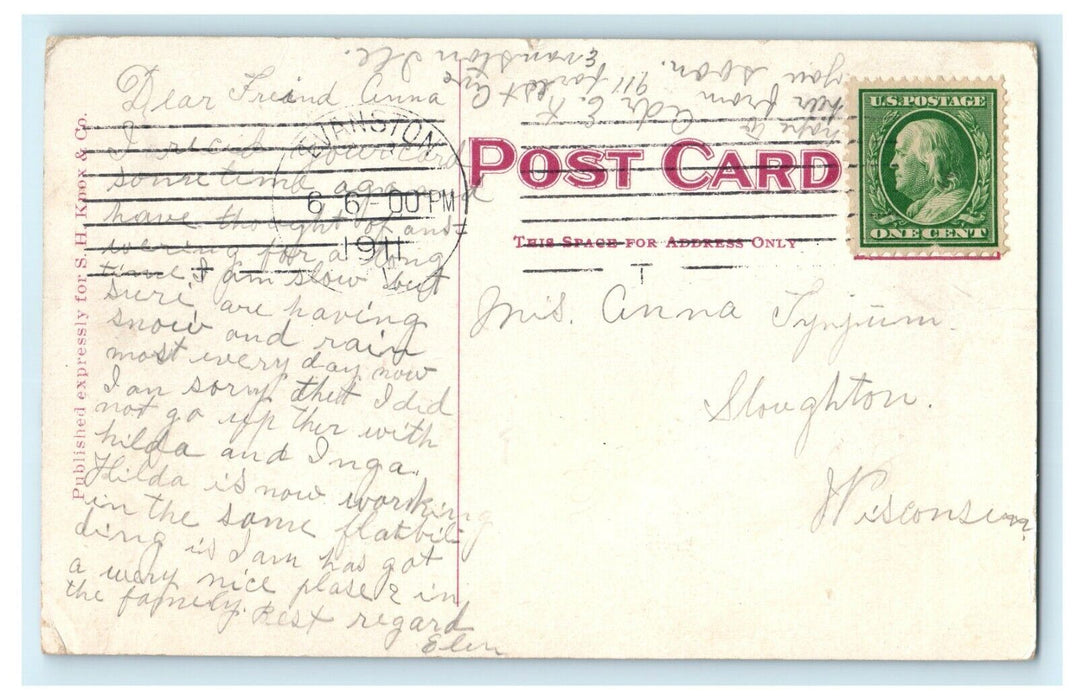 Dear Freind Anna
I recied your card
some time ago and
have thought of ans=
wering for a long
time, I am slow but
sure, are having
snow and rain
most every day now
I am sorry that I did
not go upp ther with
hilda and Inga.
Hilda is now working
in the same flatbil
ding is I am has got
a wery nice plase 2 in
the family. Best regard
Elen
hope to
her from
you soon.
Adr E. K
911 Forest Ave
Evanston Ill.
Published expressly for S. H. Knox & Co.
EVANSTON
6 6-00 PM
1911
POST CARD
THIS SPACE FOR ADDRESS ONLY
U.S. POSTAGE
ONE CENT
Mis. Anna
Stoughton.
Wisconsin